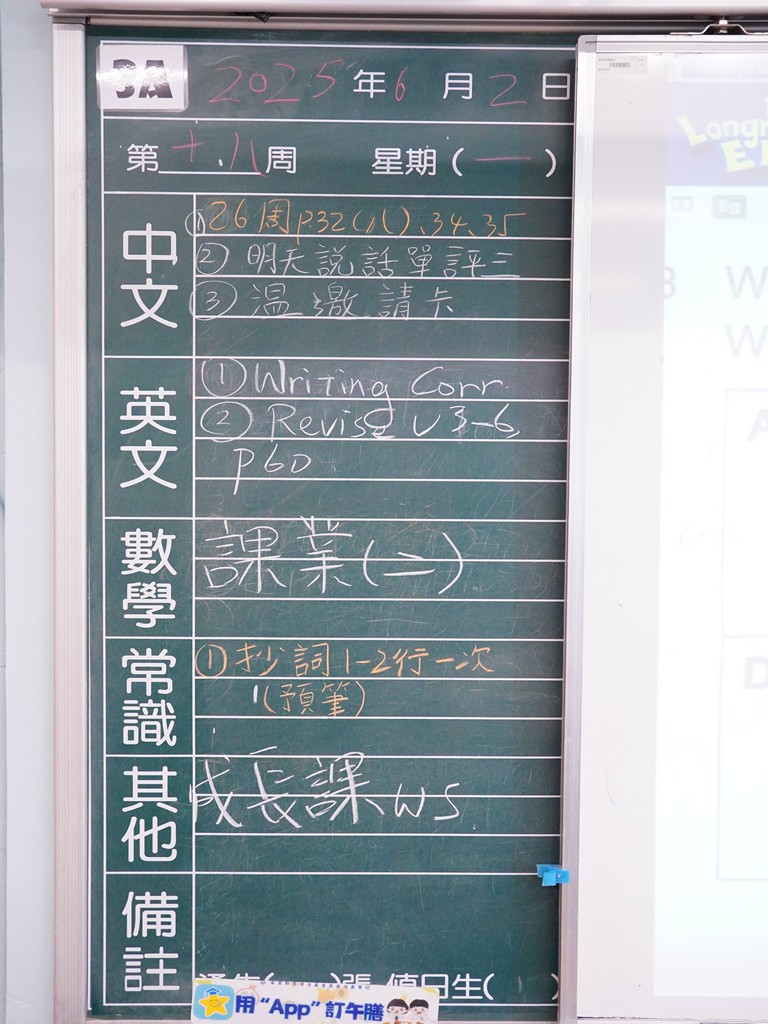 3A 2025年6月2日
第十八周 星期(一)
中文
①26周p.32(八)、34、35
②明天說話單評三
③溫邀請卡
英文
①Writing Corr
②Revise U3-6
p60
數學
課業(二)
常識
①抄詞1-2行一次
(預筆)
其他
成長課WS
備註
張 值日生( )
用“App”訂午膳